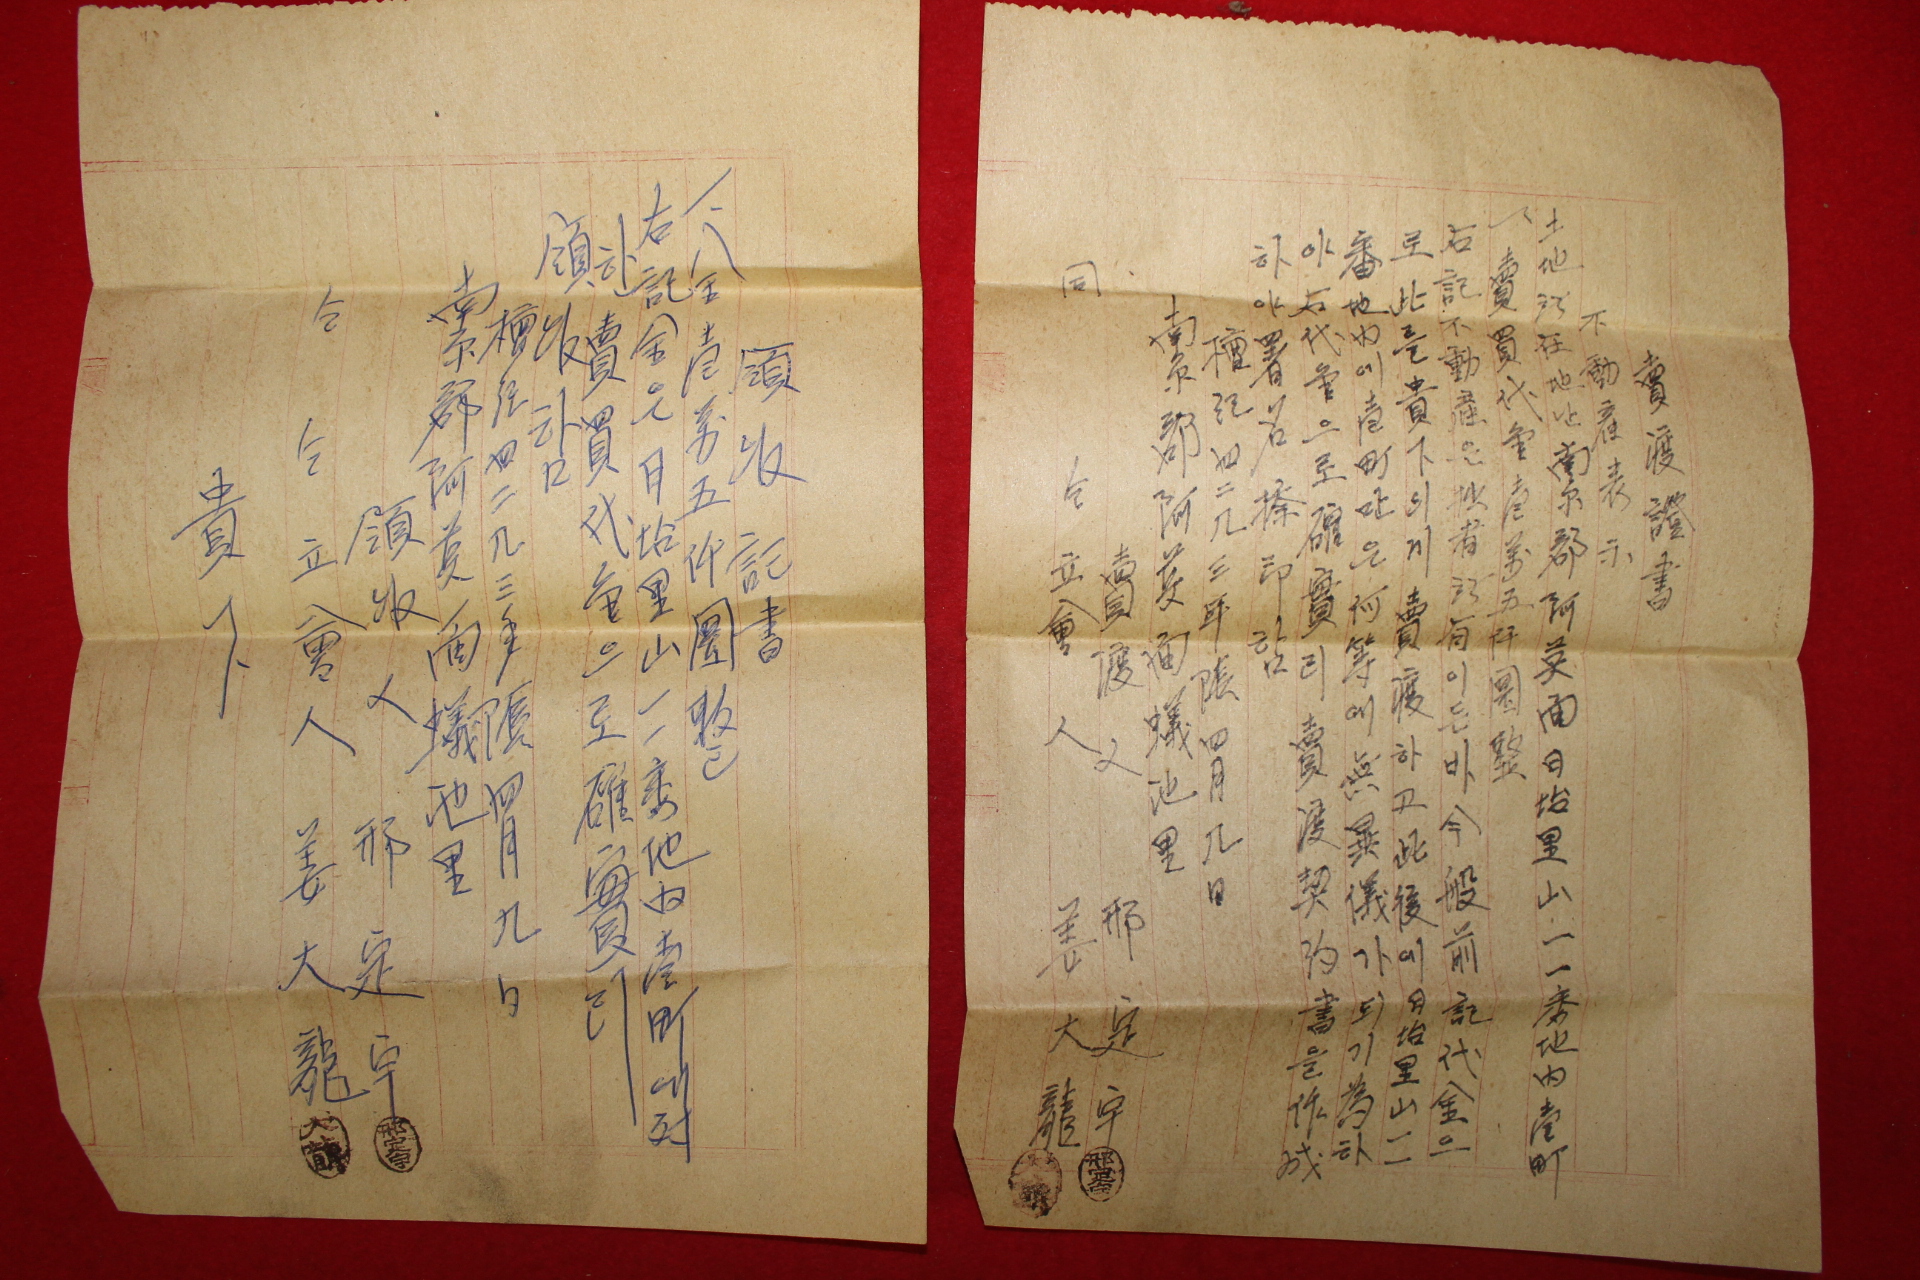 賣渡證書
不動産表示
土地所在地址南原郡阿英面日坮里山一一番地內壹町
一 賣買代金壹萬五仟圜整
右記不動産은拙者所有이든바今般前記代金으
로此를貴下의게賣渡하고此後에日坮里山一一
番地內에壹町은何等에無異儀가되기爲하
야右代金으로確實히賣渡契約書을作成
하야署名捺印함
檀紀四二九三年陰四月九日
南原郡阿英面蟻池里
賣渡人 邢定宇
同 仝 立會人 姜大龍
領收記書
一 金壹萬五仟圜整
右記金은日坮里山一一番地內壹町에対
하賣買代金으로確實히
領收함
檀紀四二九三年陰四月九日
南原郡阿英面蟻池里
領收人 邢定宇
仝 仝 立會人 姜大龍
貴下